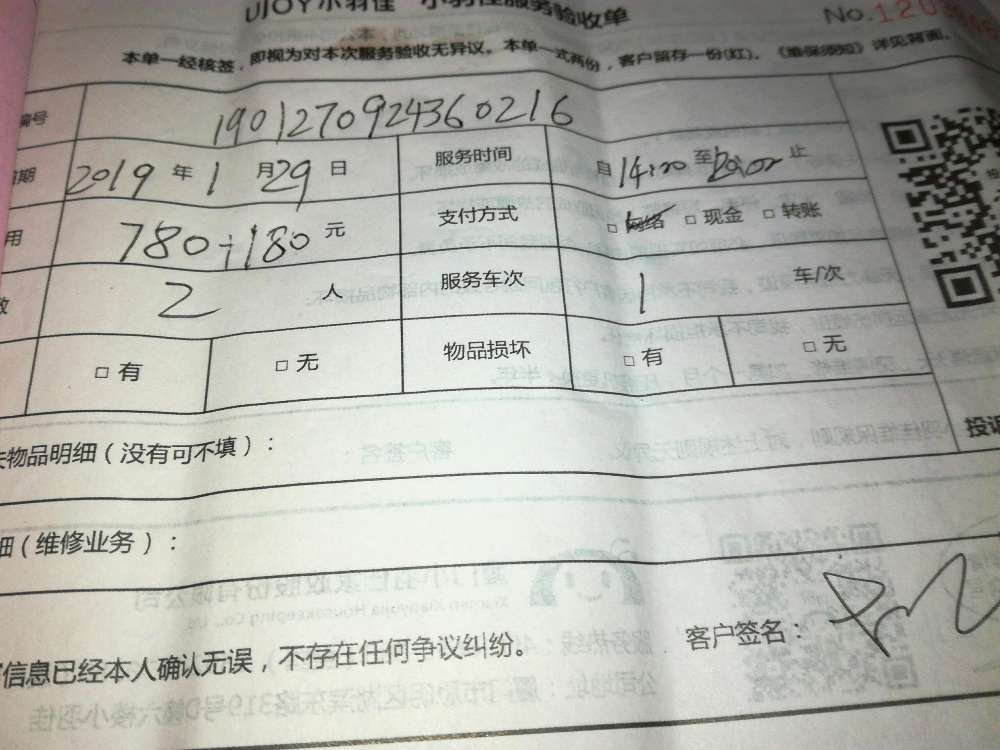 UJOY小羽佳 小羽佳服务验收单
No.
本单一经核签，即视为对本次服务验收无异议。本单一式两份，客户留存一份(红)。《维保须知》详见背面。
编号 1901270924360216
期 2019年1月29日 服务时间 自14:00至 止
用 780+180元 支付方式 □网络 □现金 □转账
数 2人 服务车次 1车/次
□有 □无 物品损坏 □有 □无
失物品明细（没有可不填）：
投诉
细（维修业务）：
信息已经本人确认无误，不存在任何争议纠纷。
客户签名：